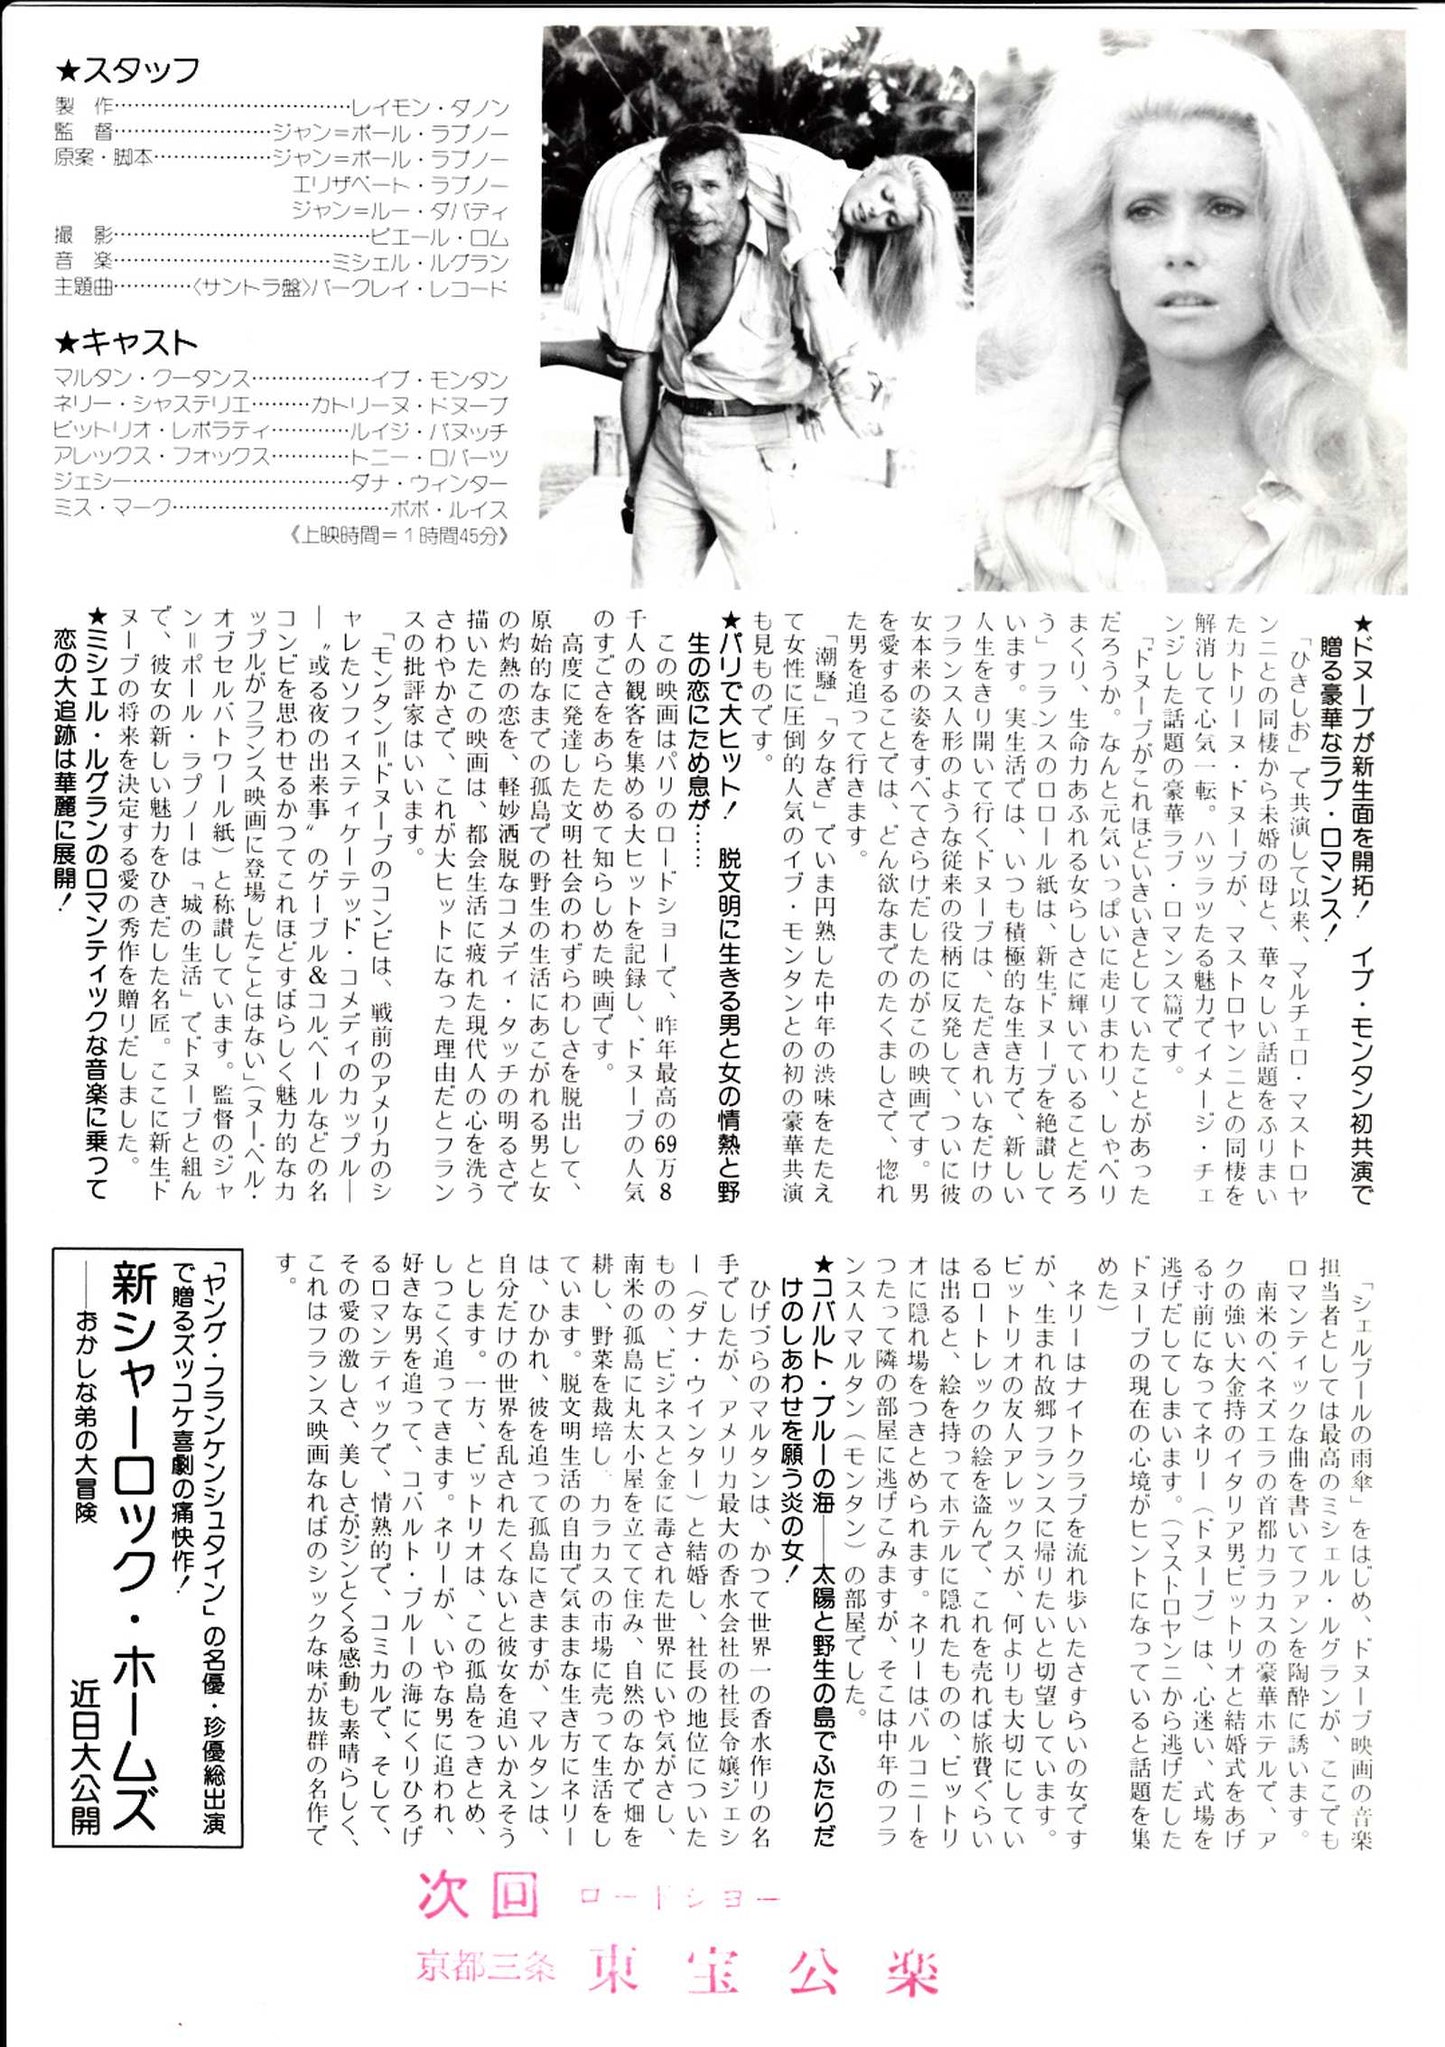 ★スタッフ
製　作……………………………レイモン・ダノン
監　督…………………ジャン＝ポール・ラプノー
原案・脚本……………ジャン＝ポール・ラプノー
エリザベート・ラプノー
ジャン＝ルー・ダバディ
撮　影……………………………ピエール・ロム
音　楽…………………………ミシェル・ルグラン
主題曲………〈サントラ盤〉バークレイ・レコード
★キャスト
マルタン・クータンス……………イブ・モンタン
ネリー・シャステリエ………カトリーヌ・ドヌーブ
ビットリオ・レポラティ…………ルイジ・バヌッチ
アレックス・フォックス…………トニー・ロバーツ
ジェシー…………………………ダナ・ウィンター
ミス・マーク………………………ボボ・ルイス
《上映時間＝1時間45分》
★ドヌーブが新生面を開拓！　イブ・モンタン初共演で
贈る豪華なラブ・ロマンス！
「ひきしお」で共演して以来、マルチェロ・マストロヤ
ンニとの同棲から未婚の母と、華々しい話題をふりまい
たカトリーヌ・ドヌーブが、マストロヤンニとの同棲を
解消して心気一転。ハツラツたる魅力でイメージ・チェ
ンジした話題の豪華ラブ・ロマンス篇です。
「ドヌーブがこれほどいきいきとしていたことがあった
だろうか。なんと元気いっぱいに走りまわり、しゃべり
まくり、生命力あふれる女らしさに輝いていることだろ
う」フランスのロロール紙は、新生ドヌーブを絶讃して
います。実生活では、いつも積極的な生き方で、新しい
人生をきり開いて行くドヌーブは、ただきれいなだけの
フランス人形のような従来の役柄に反発して、ついに彼
女本来の姿をすべてさらけだしたのがこの映画です。男
を愛することでは、どん欲なまでのたくましさで、惚れ
た男を追って行きます。
「潮騒」「夕なぎ」でいま円熟した中年の渋味をたたえ
て女性に圧倒的人気のイブ・モンタンとの初の豪華共演
も見ものです。
★パリで大ヒット！　脱文明に生きる男と女の情熱と野
生の恋にため息が……
この映画はパリのロードショーで、昨年最高の69万8
千人の観客を集める大ヒットを記録し、ドヌーブの人気
のすごさをあらためて知らしめた映画です。
高度に発達した文明社会のわずらわしさを脱出して、
原始的なまでの孤島での野生の生活にあこがれる男と女
の灼熱の恋を、軽妙洒脱なコメディ・タッチの明るさで
描いたこの映画は、都会生活に疲れた現代人の心を洗う
さわやかさで、これが大ヒットになった理由だとフラン
スの批評家はいいます。
「モンタン＝ドヌーブのコンビは、戦前のアメリカのシ
ャレたソフィスティケーテッド・コメディのカップル—
—〝或る夜の出来事〟のゲーブル&コルベールなどの名
コンビを思わせるかつてこれほどすばらしく魅力的なカ
ップルがフランス映画に登場したことはない」（ヌーベル・
オブセルバトワール紙）と称讃しています。監督のジャ
ン＝ポール・ラプノーは「城の生活」でドヌーブと組ん
で、彼女の新しい魅力をひきだした名匠。ここに新生ド
ヌーブの将来を決定する愛の秀作を贈りだしました。
★ミシェル・ルグランのロマンティックな音楽に乗って
恋の大追跡は華麗に展開！
「シェルブールの雨傘」をはじめ、ドヌーブ映画の音楽
担当者としては最高のミシェル・ルグランが、ここでも
ロマンティックな曲を書いてファンを陶酔に誘います。
南米のベネズエラの首都カラカスの豪華ホテルで、ア
クの強い大金持のイタリア男ビットリオと結婚式をあげ
る寸前になってネリー（ドヌーブ）は、心迷い、式場を
逃げだしてしまいます。（マストロヤンニから逃げだした
ドヌーブの現在の心境がヒントになっていると話題を集
めた）
ネリーはナイトクラブを流れ歩いたさすらいの女です
が、生まれ故郷フランスに帰りたいと切望しています。
ビットリオの友人アレックスが、何よりも大切にしてい
るロートレックの絵を盗んで、これを売れば旅費ぐらい
は出ると、絵を持ってホテルに隠れたものの、ビットリ
オに隠れ場をつきとめられます。ネリーはバルコニーを
つたって隣の部屋に逃げこみますが、そこは中年のフラ
ンス人マルタン（モンタン）の部屋でした。
★コバルト・ブルーの海——太陽と野生の島でふたりだ
けのしあわせを願う炎の女！
ひげづらのマルタンは、かつて世界一の香水作りの名
手でしたが、アメリカ最大の香水会社の社長令嬢ジェシ
ー（ダナ・ウインター）と結婚し、社長の地位についた
ものの、ビジネスと金に毒された世界にいや気がさし、
南米の孤島に丸太小屋を立てて住み、自然のなかで畑を
耕し、野菜を栽培し、カラカスの市場に売って生活をし
ています。脱文明生活の自由で気ままな生き方にネリー
は、ひかれ、彼を追って孤島にきますが、マルタンは、
自分だけの世界を乱されたくないと彼女を追いかえそう
とします。一方、ビットリオは、この孤島をつきとめ、
しつこく追ってきます。ネリーが、いやな男に追われ、
好きな男を追って、コバルト・ブルーの海にくりひろげ
るロマンティックで、情熱的で、コミカルで、そして、
その愛の激しさ、美しさがジンとくる感動も素晴らしく、
これはフランス映画なればのシックな味が抜群の名作で
す。
「ヤング・フランケンシュタイン」の名優・珍優総出演
で贈るズッコケ喜劇の痛快作！
新シャーロック・ホームズ
——おかしな弟の大冒険
近日大公開
次回 ロードショー
京都三条 東宝公楽